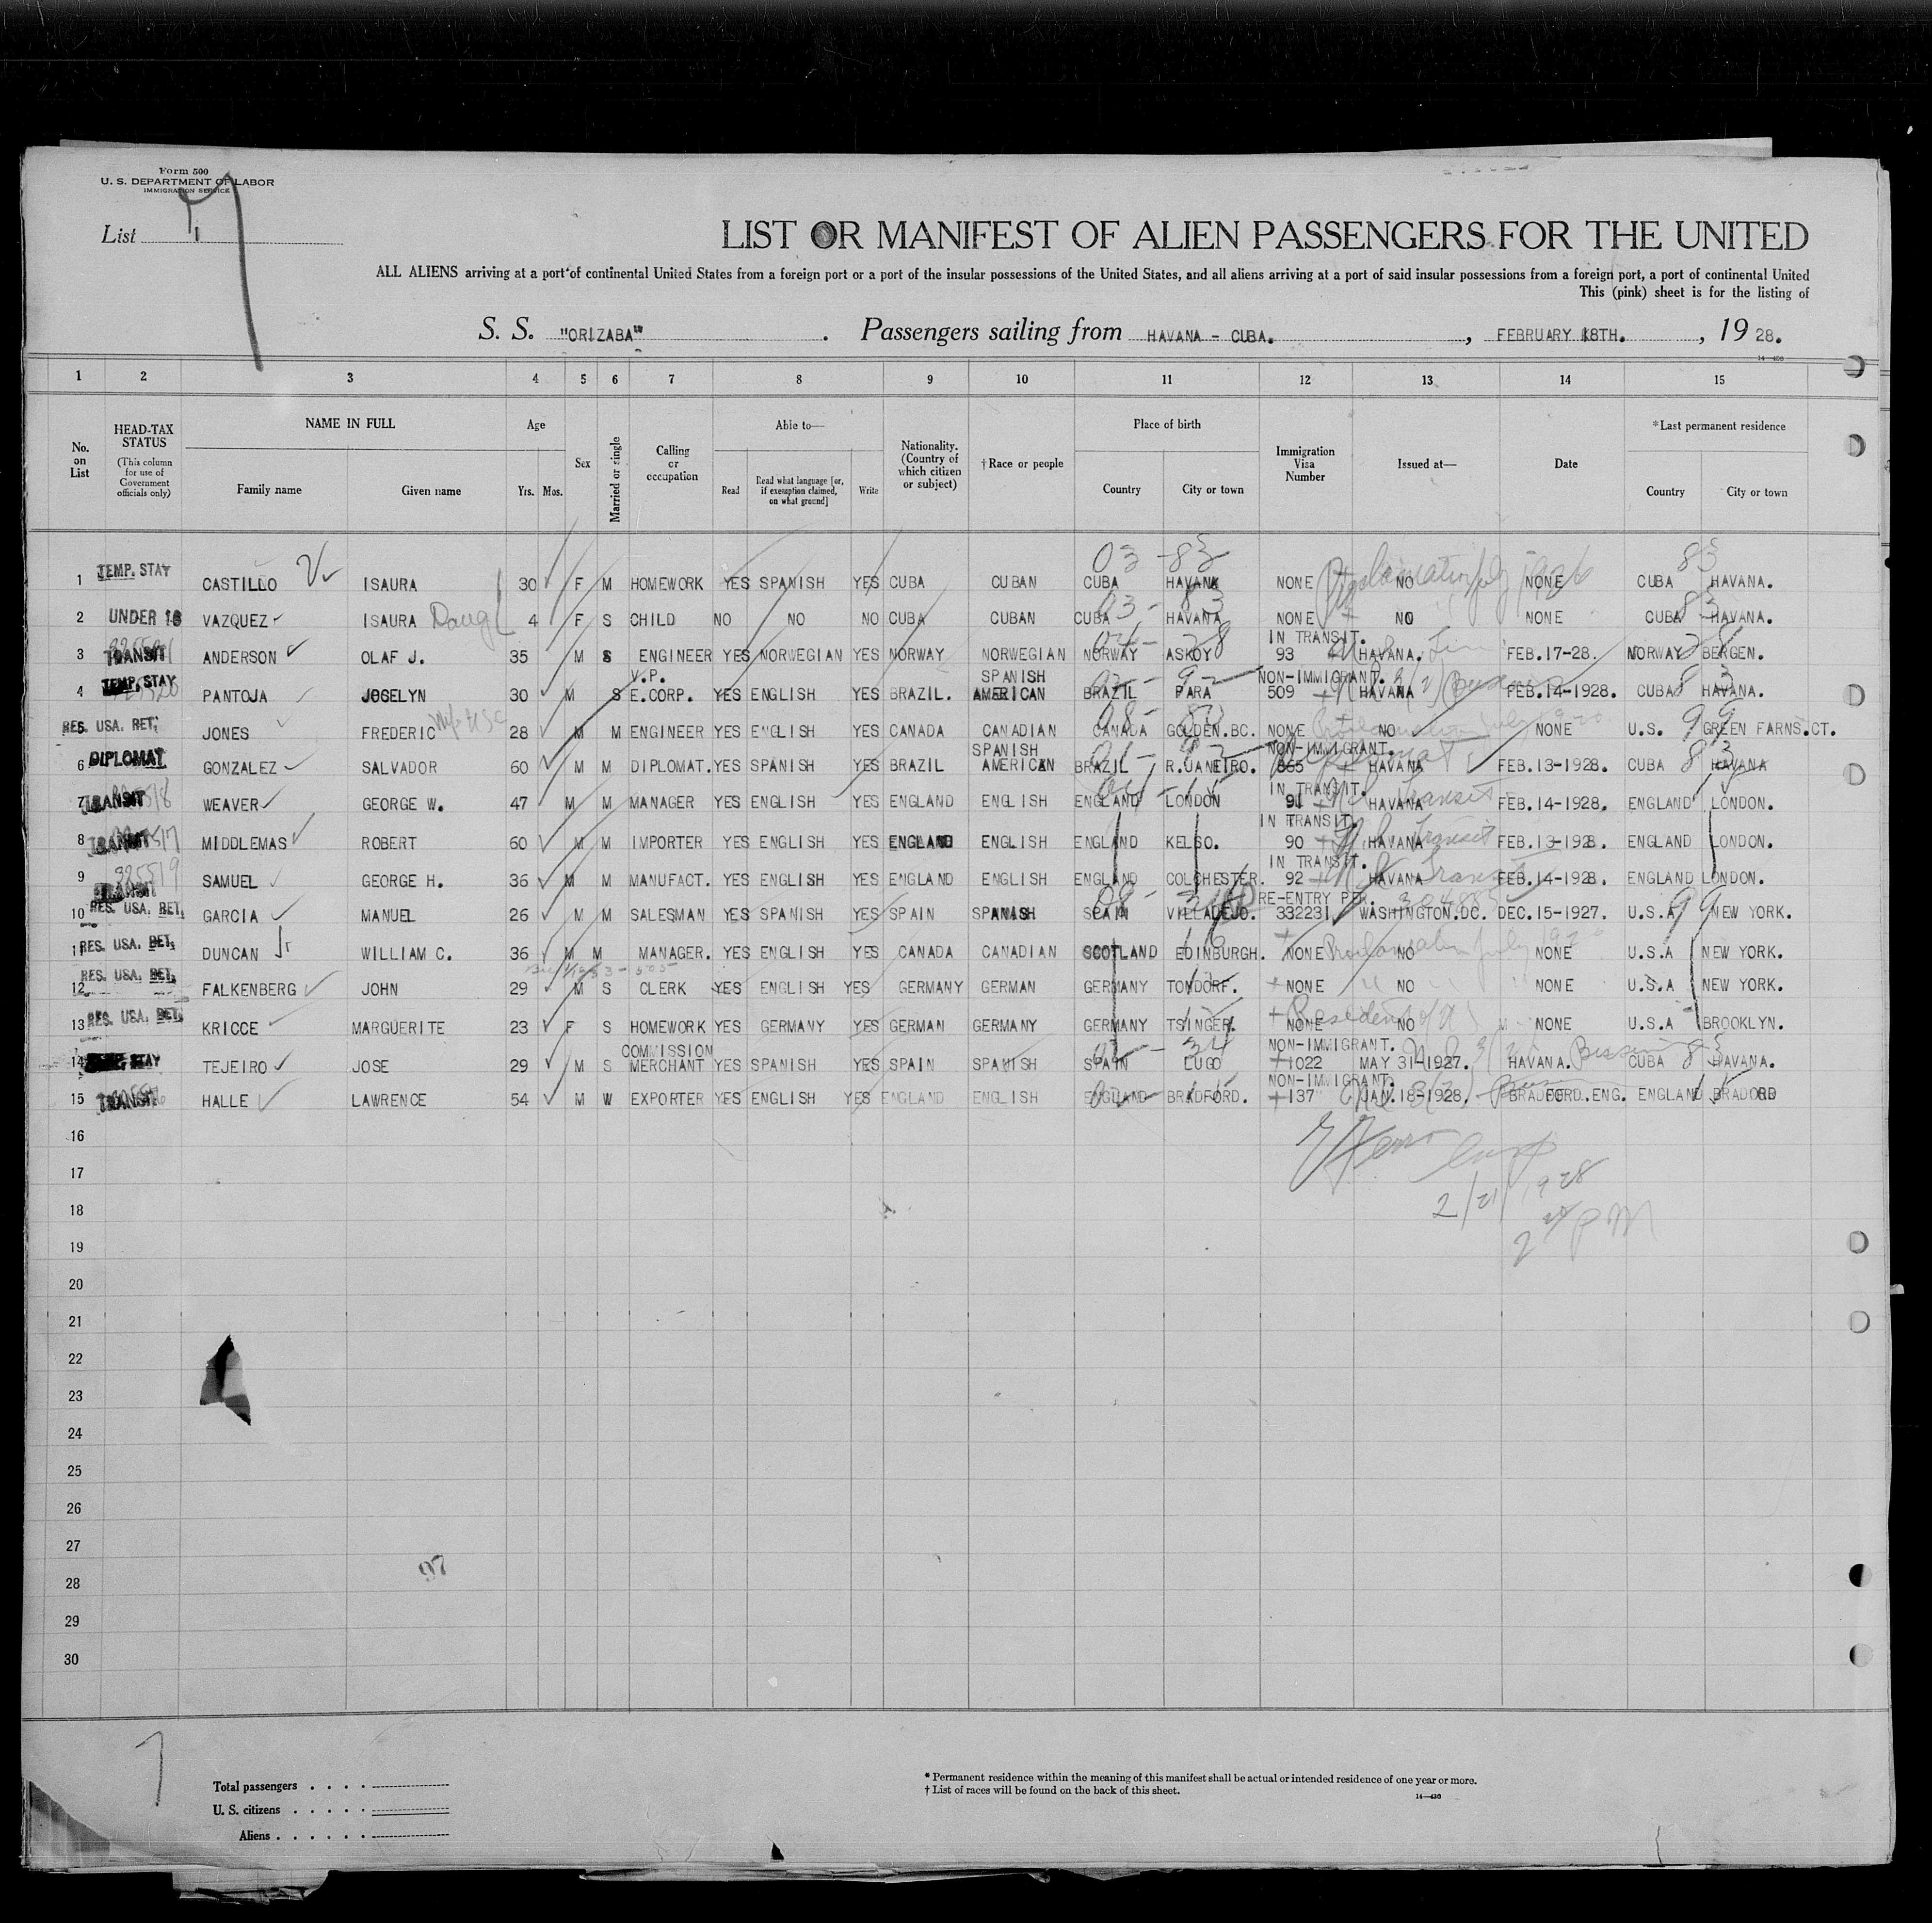 Form 500
U. S. DEPARTMENT OF LABOR
IMMIGRATION SERVICE
List 1
7
LIST OR MANIFEST OF ALIEN PASSENGERS FOR THE UNITED
ALL ALIENS arriving at a port of continental United States from a foreign port or a port of the insular possessions of the United States, and all aliens arriving at a port of said insular possessions from a foreign port, a port of continental United
This (pink) sheet is for the listing of
S. S. "ORIZABA" . Passengers sailing from HAVANA - CUBA. , FEBRUARY 18TH. , 1928.
14—430
1 2 3 4 5 6 7 8 9 10 11 12 13 14 15
No. on List
HEAD-TAX STATUS (This column for use of Government officials only)
NAME IN FULL Family name Given name
Age Yrs. Mos.
Sex
Married or single
Calling or occupation
Able to— Read Read what language [or, if exemption claimed, on what ground] Write
Nationality. (Country of which citizen or subject)
†Race or people
Place of birth Country City or town
Immigration Visa Number
Issued at—
Date
*Last permanent residence Country City or town
03 - 83 83
1 TEMP. STAY CASTILLO ISAURA 30 F M HOMEWORK YES SPANISH YES CUBA CUBAN CUBA HAVANA NONE NO NONE CUBA HAVANA.
2 UNDER 16 VAZQUEZ ISAURA Daug 4 F S CHILD NO NO NO CUBA CUBAN CUBA HAVANA NONE NO NONE CUBA HAVANA.
IN TRANSIT.
3 TRANSIT ANDERSON OLAF J. 35 M S ENGINEER YES NORWEGIAN YES NORWAY NORWEGIAN NORWAY ASKOY 93 HAVANA. FEB.17-28. NORWAY BERGEN.
V.P. SPANISH NON-IMMIGRANT.
4 TEMP. STAY PANTOJA JOSELYN 30 M S E.CORP. YES ENGLISH YES BRAZIL. AMERICAN BRAZIL PARA 509 HAVANA FEB.14-1928. CUBA HAVANA.
5 RES. USA. RET. JONES FREDERIC 28 M M ENGINEER YES ENGLISH YES CANADA CANADIAN CANADA GOLDEN.BC. NONE NO NONE U.S. GREEN FARNS.CT.
SPANISH NON-IMMIGRANT.
6 DIPLOMAT GONZALEZ SALVADOR 60 M M DIPLOMAT. YES SPANISH YES BRAZIL AMERICAN BRAZIL R.JANEIRO. 865 HAVANA FEB.13-1928. CUBA HAVANA
IN TRANSIT.
7 TRANSIT WEAVER GEORGE W. 47 M M MANAGER YES ENGLISH YES ENGLAND ENGLISH ENGLAND LONDON 91 HAVANA FEB.14-1928. ENGLAND LONDON.
IN TRANSIT.
8 TRANSIT MIDDLEMAS ROBERT 60 M M IMPORTER YES ENGLISH YES ENGLAND ENGLISH ENGLAND KELSO. 90 HAVANA Transit FEB.13-1928. ENGLAND LONDON.
IN TRANSIT.
9 TRANSIT SAMUEL GEORGE H. 36 M M MANUFACT. YES ENGLISH YES ENGLAND ENGLISH ENGLAND COLCHESTER. 92 HAVANA Transit FEB.14-1928. ENGLAND LONDON.
RE-ENTRY PER.
10 RES. USA. RET. GARCIA MANUEL 26 M M SALESMAN YES SPANISH YES SPAIN SPANISH SPAIN VILLADEJO. 332231 WASHINGTON.DC. DEC.15-1927. U.S.A 99 NEW YORK.
11 RES. USA. RET. DUNCAN Jr WILLIAM C. 36 M M MANAGER. YES ENGLISH YES CANADA CANADIAN SCOTLAND EDINBURGH. NONE NO NONE U.S.A NEW YORK.
12 RES. USA. RET. FALKENBERG JOHN 29 M S CLERK YES ENGLISH YES GERMANY GERMAN GERMANY TONDORF. NONE NO NONE U.S.A NEW YORK.
13 RES. USA. RET. KRICCE MARGUERITE 23 F S HOMEWORK YES GERMANY YES GERMAN GERMANY GERMANY TSINGER. NONE NO NONE U.S.A BROOKLYN.
COMMISSION NON-IMMIGRANT.
14 TEMP. STAY TEJEIRO JOSE 29 M S MERCHANT YES SPANISH YES SPAIN SPANISH SPAIN LUGO 1022 MAY 31-1927. HAVANA. CUBA 83 HAVANA.
NON-IMMIGRANT.
15 TRANSIT HALLE LAWRENCE 54 M W EXPORTER YES ENGLISH YES ENGLAND ENGLISH ENGLAND BRADFORD. 137 JAN.18-1928. BRADFORD.ENG. ENGLAND
16
2/21/1928
17
18
2 PM
19
20
21
22
23
24
25
26
27
97
28
29
30
7
Total passengers
U. S. citizens
Aliens
* Permanent residence within the meaning of this manifest shall be actual or intended residence of one year or more.
† List of races will be found on the back of this sheet.
14—430